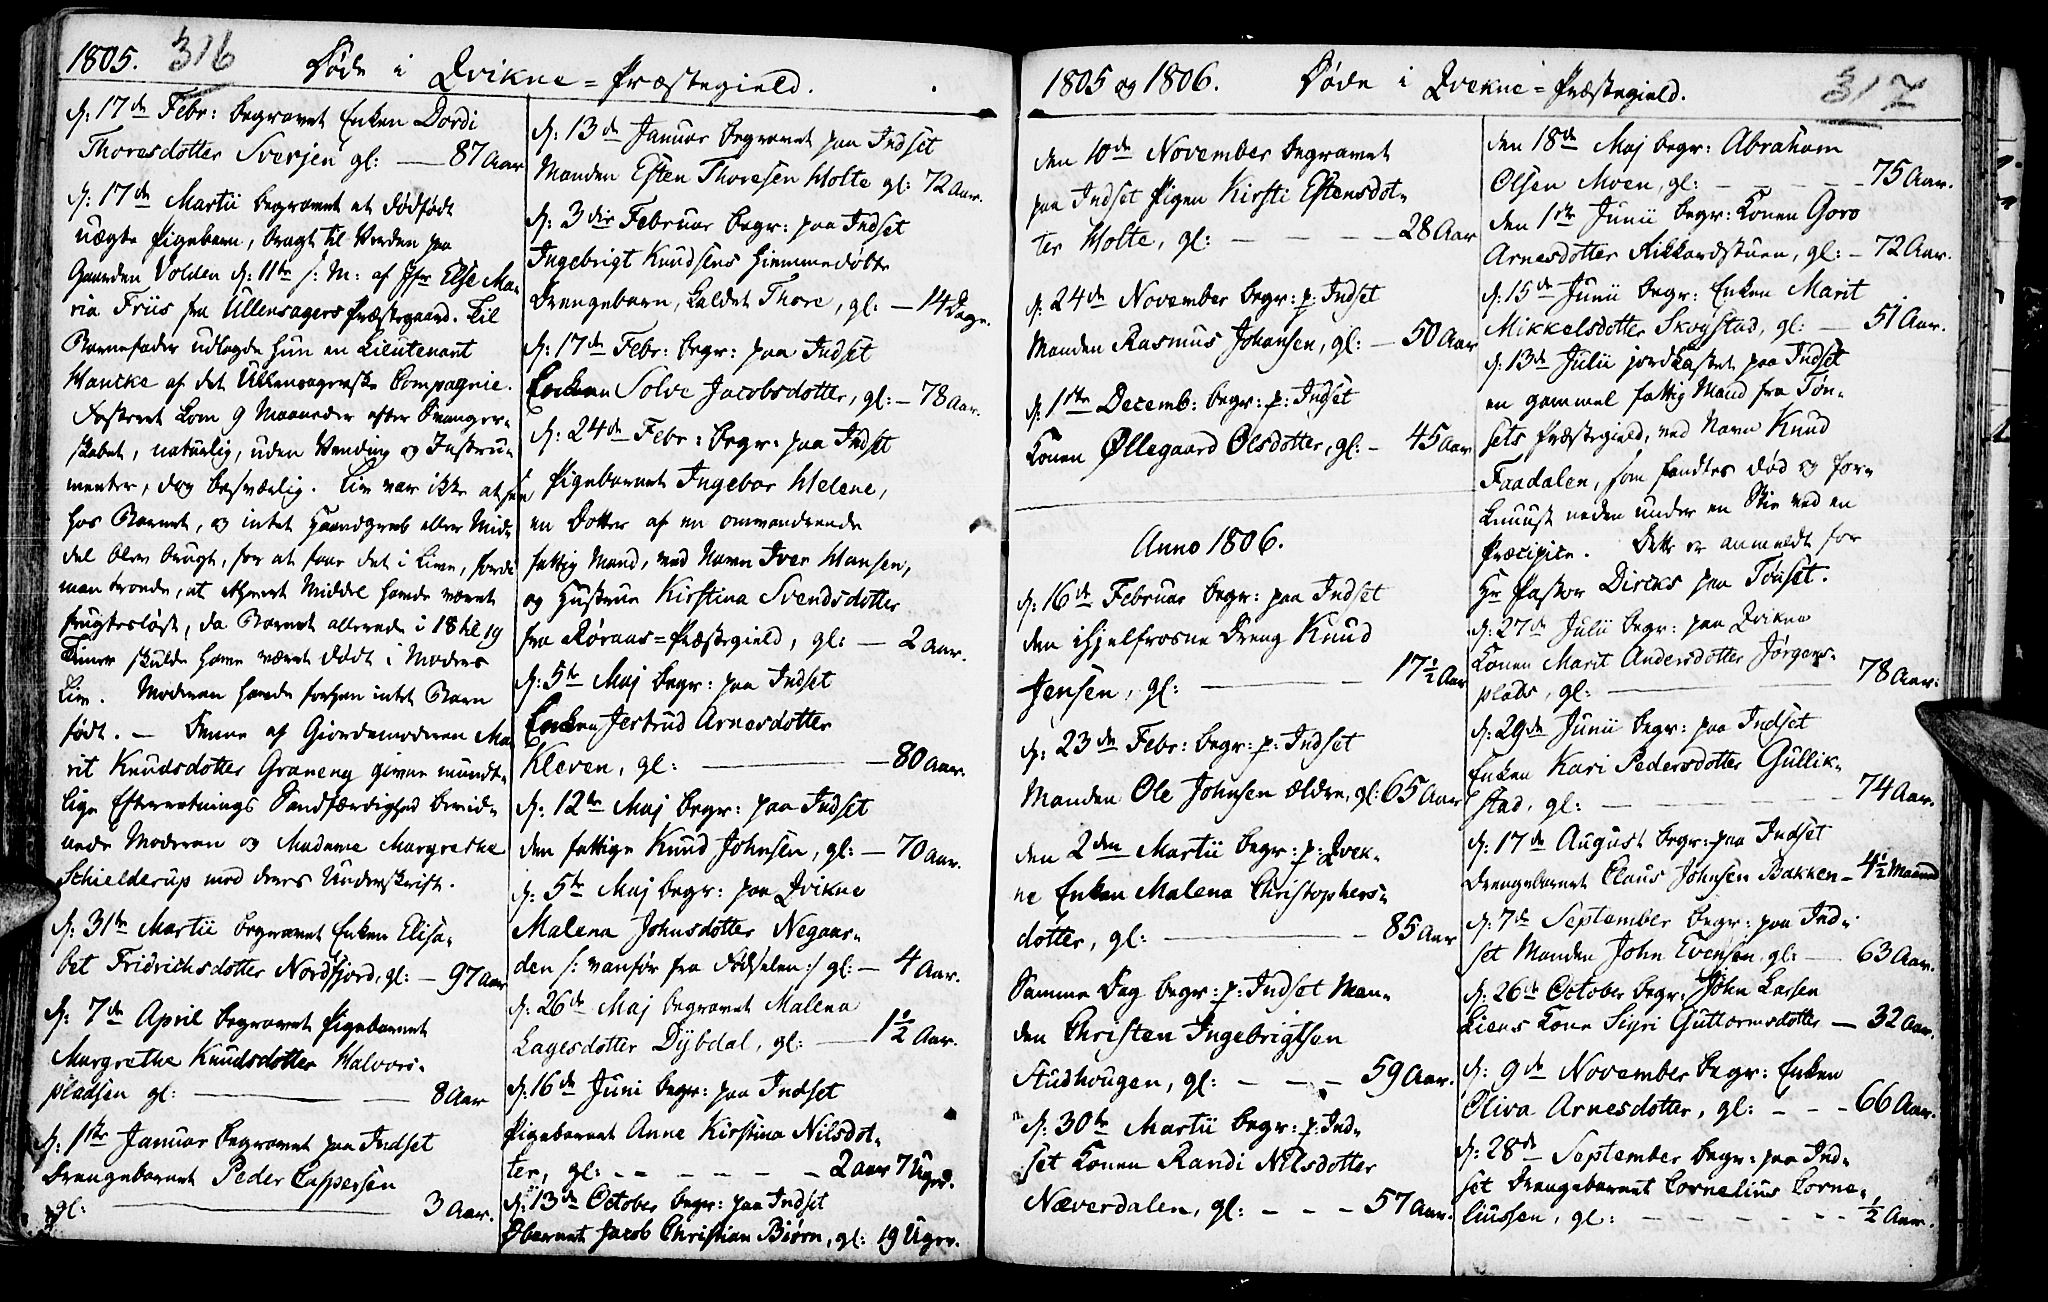 1805. 316 Døde i Qvikne-Præstegield.
d: 17de Febr: begravet Enken Dordi
Thoresdotter Sverjen gl: — 87 Aar
d: 17de Martii begravet et dødfødt
uægte Pigebarn, bragt til Verden paa
Gaarden Volden d: 11te s: M: af Jfr Else Ma-
ria Friis fra Ullensagers Præstegaard. Til
Barnefader udlagde hun en Lieutenant
Hancke af det Ullensagerske Compagnie.
Fosteret kom 9 Maaneder efter Svanger-
skabet, naturlig, uden Vending og Instru-
menter, dog besværlig. Liv var ikke at see
hos Barnet, og intet Haandgreb eller Mid-
del blev brugt, for at faae det i Live, fordi
man troede, at ethvert Middel havde været
frugtesløst, da Barnet allerede i 18 til 19
Timer skulde have været dødt i Moders
Liv. Moderen havde forhen intet Barn
født. — Denne af Giordemoderen Ma-
rit Knudsdotter Graneng givne mundt-
lige Efterretnings Sandfærdighed bevid-
nede Moderen og Madame Margrethe
Schielderup med deres Underskrift.
d: 31te Martii begravet Enken Elisa-
bet Fridrichsdotter Nordfjord, gl: — 97 Aar
d: 7de April begravet Pigebarnet
Margrethe Knudsdotter Halvors-
pladsen gl: — 8 Aar
d: 1ste Januar begravet paa Indset
Drengebarnet Peder Caspersen
gl: — 3 Aar.
d: 13de Januar begravet paa Indset
Manden Esten Thoresen Holte gl: 72 Aar.
d: 3die Februar begr: paa Indset
Ingebrigt Knudsens hiemmedøbte
Drengebarn, kaldet Thore, gl: — 14 Dage.
d: 17de Febr: begr: paa Indset
Enken Solve Jacobsdotter, gl: — 78 Aar.
d: 24de Febr: begr: paa Indset
Pigebarnet Ingebor Helene,
en Dotter af en omvandrende
fattig Mand, ved Navn Iver Hansen,
og Hustrue Kirstina Svendsdotter
fra Røraas-Præstegield, gl: — 2 Aar.
d: 5te Maj begr: paa Indset
Enken Jertrud Arnesdotter
Kleven, gl: — 80 Aar.
d: 12te Maj begr: paa Indset
den fattige Knud Johnsen, gl: — 70 Aar.
d: 5te Maj begr: paa Qvikne
Malena Johnsdotter Negaar-
den /: vanfør fra Fødselen :/ gl: — 4 Aar.
d: 26de Maj begravet Malena
Lagesdotter Dÿbdal, gl: — 1 1/2 Aar.
d: 16de Juni begr: paa Indset
Pigebarnet Anne Kirstina Nilsdot-
ter, gl: — 2 Aar 7 Uger.
d: 13de October begr: paa Indset
Øbarnet Jacob Christian Biørn, gl: 19 Uger.
1805 og 1806. Døde i Qvikne-Præstegield. 317
den 10de November begravet
paa Indset Pigen Kirsti Estensdot-
ter Holte, gl: — 28 Aar
d: 24de November begr: p: Indset
Manden Rasmus Johansen, gl: — 50 Aar
d: 1ste Decemb: begr: p: Indset
Konen Øllegaard Olsdotter, gl: — 45 Aar
Anno 1806.
d: 16de Februar begr: paa Indset
den ihjelfrosne Dreng Knud
Jensen, gl: — 17 1/2 Aar
d: 23de Febr: begr: p: Indset
Manden Ole Johnsen ældre, gl: 65 Aar
den 2den Martii begr: p: Qvik-
ne Enken Malena Christophers-
dotter, gl: — 85 Aar
Samme Dag begr: p: Indset Man-
den Christen Ingebrigtsen
Studhougen, gl: — 59 Aar.
d: 30te Martii begr: p: Ind-
set Konen Randi Nilsdotter
Næverdalen, gl: — 57 Aar.
den 18de Maj begr: Abraham
Olsen Moen, gl: — 75 Aar.
den 1ste Junii begr: Konen Goro
Arnesdotter Rikkardstuen, gl: — 72 Aar.
d: 15de Junii begr: Enken Marit
Mikkelsdotter Skogstad, gl: — 51 Aar.
d: 13de Julii jordkastet paa Indset
en gammel fattig Mand fra Tøn-
sets Præstegield, ved Navn Knud
Faadalen, som fandtes død og for-
knuust neden under en Stie ved en
Præcipice. Dette er anmeldt for
Hr Pastor Dircks paa Tønset.
d: 27de Julii begr: paa Qvikne
Konen Marit Andersdotter Jørgens-
plads, gl: — 78 Aar.
d: 29de Junii begr: paa Indset
Enken Kari Pedersdotter Gullik-
stad, gl: — 74 Aar.
d: 17de August begr: paa Indset
Drengebarnet Claus Johnsen Bakken — 4 1/2 Maaned
d: 7de September begr: paa Ind-
set Manden John Evensen, gl: — 63 Aar.
d: 26de October begr: John Larsen
Liens Kone Sigri Guttormsdotter — 32 Aar.
d: 9de November begr: Enken
Oliva Arnesdotter, gl: — 66 Aar.
d: 28de September begr: paa Ind-
set Drengebarnet Cornelius Corne-
liussen, gl: — 1/2 Aar.